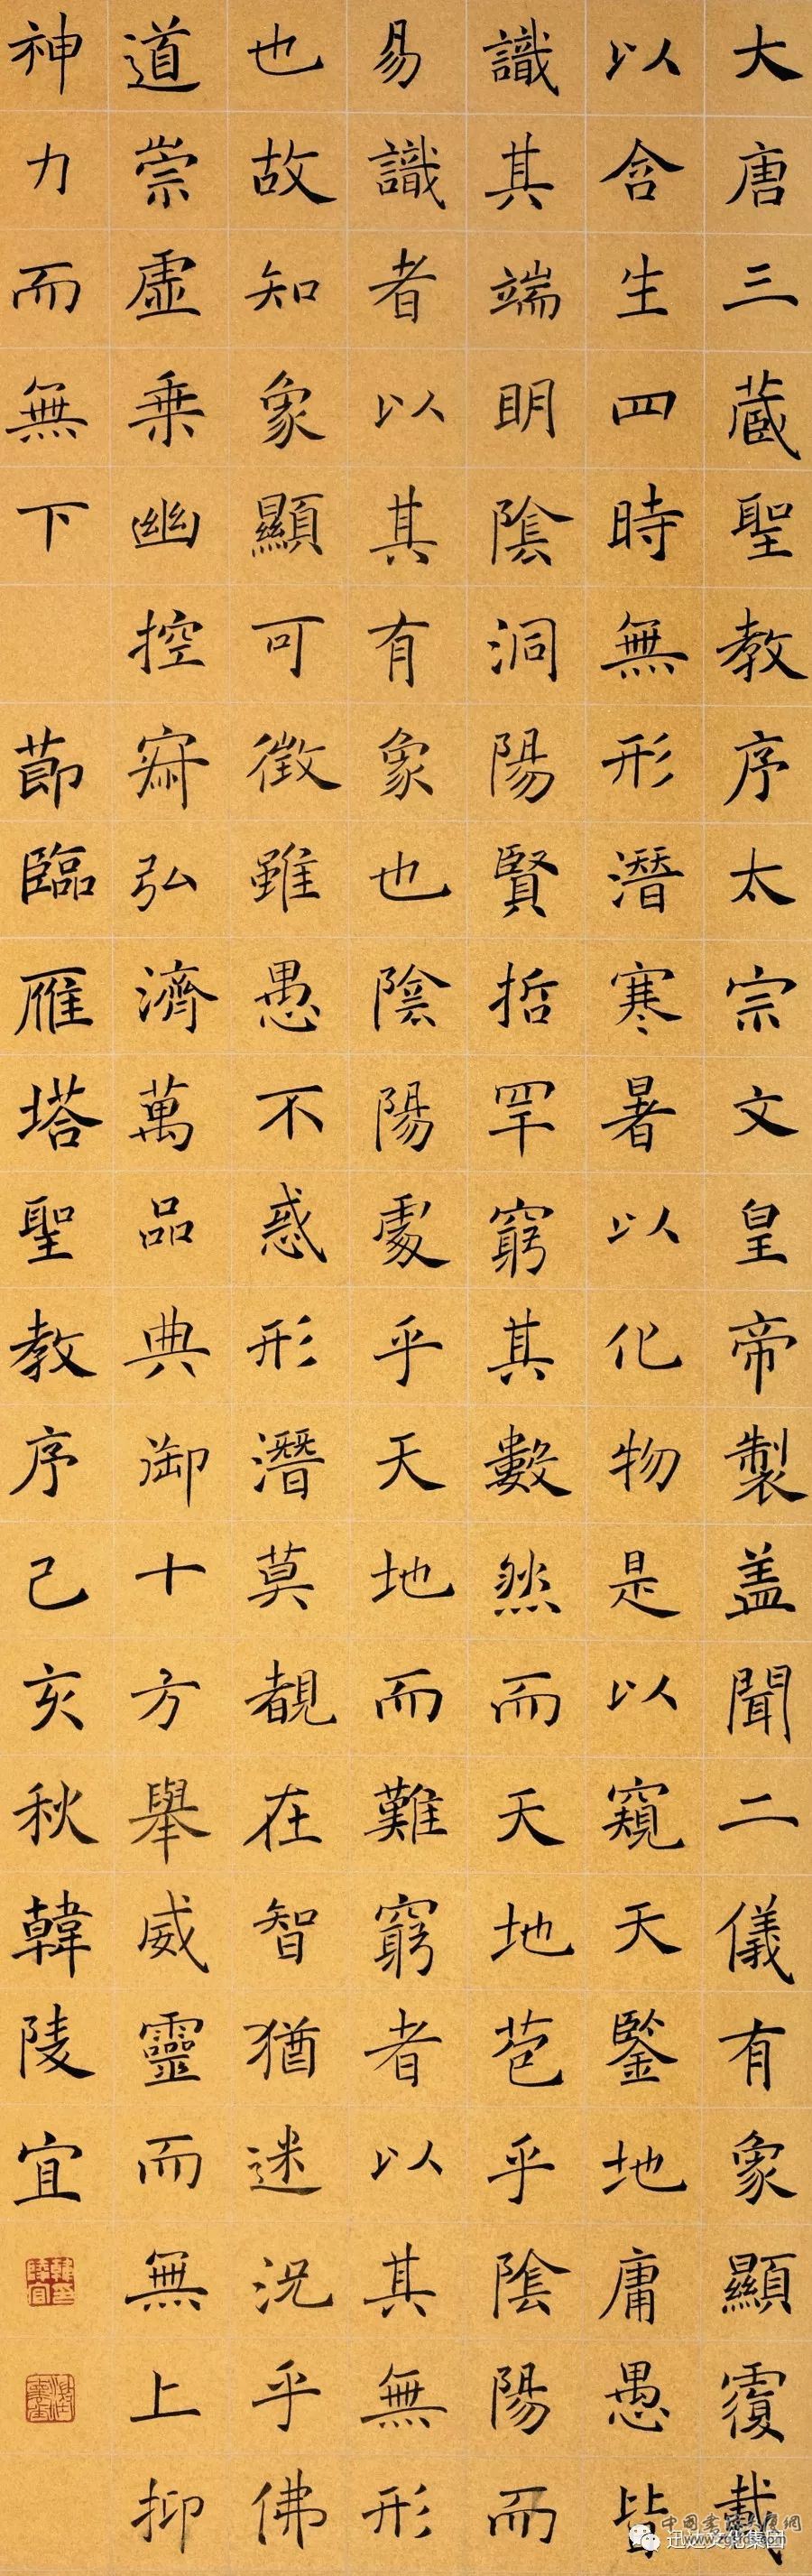 大唐三蔵聖教序太宗文皇帝製盖聞二儀有象顯覆載
以含生四時無形潛寒暑以化物是以窺天鑒地庸愚皆
識其端明陰洞陽賢哲罕窮其數然而天地苞乎陰陽而
易識者以其有象也陰陽處乎天地而難窮者以其無形
也故知象顯可徵雖愚不惑形潛莫覩在智猶迷況乎佛
道崇虛乗幽控寂弘濟萬品典御十方舉威靈而無上抑
神力而無下
節臨雁塔聖教序己亥秋韓陵宜
中国書法大展网
迅达文化集团